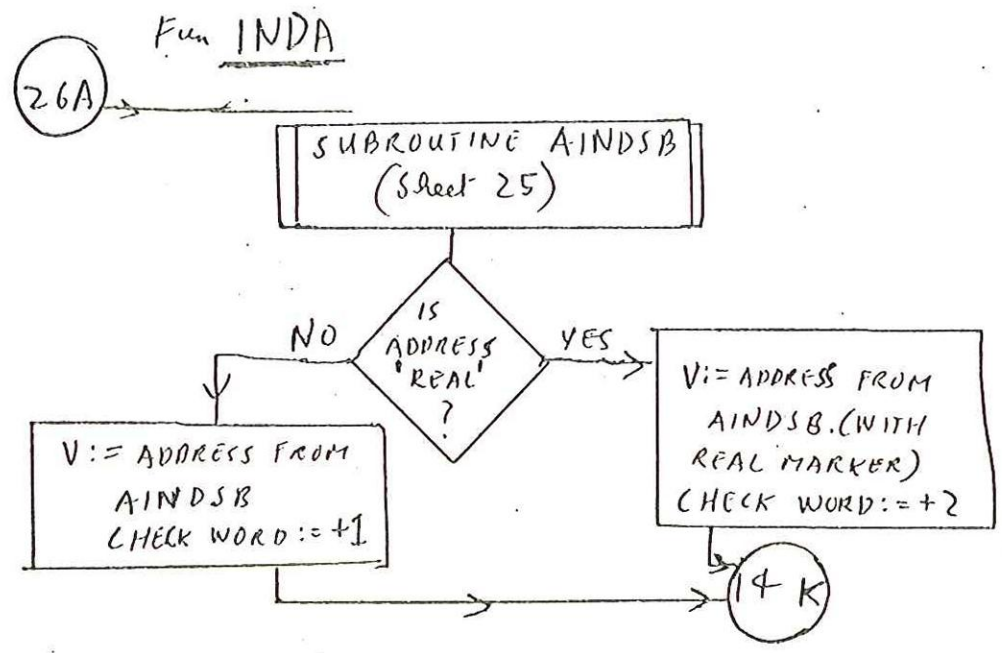 Fun INDA
26A
SUBROUTINE AINDSB
(Sheet 25)
IS
ADDRESS
'REAL'
?
NO
YES
V:= ADDRESS FROM
AINDSB
CHECK WORD:= +1
V:= ADDRESS FROM
AINDSB. (WITH
REAL MARKER)
CHECK WORD:= +2
14 K